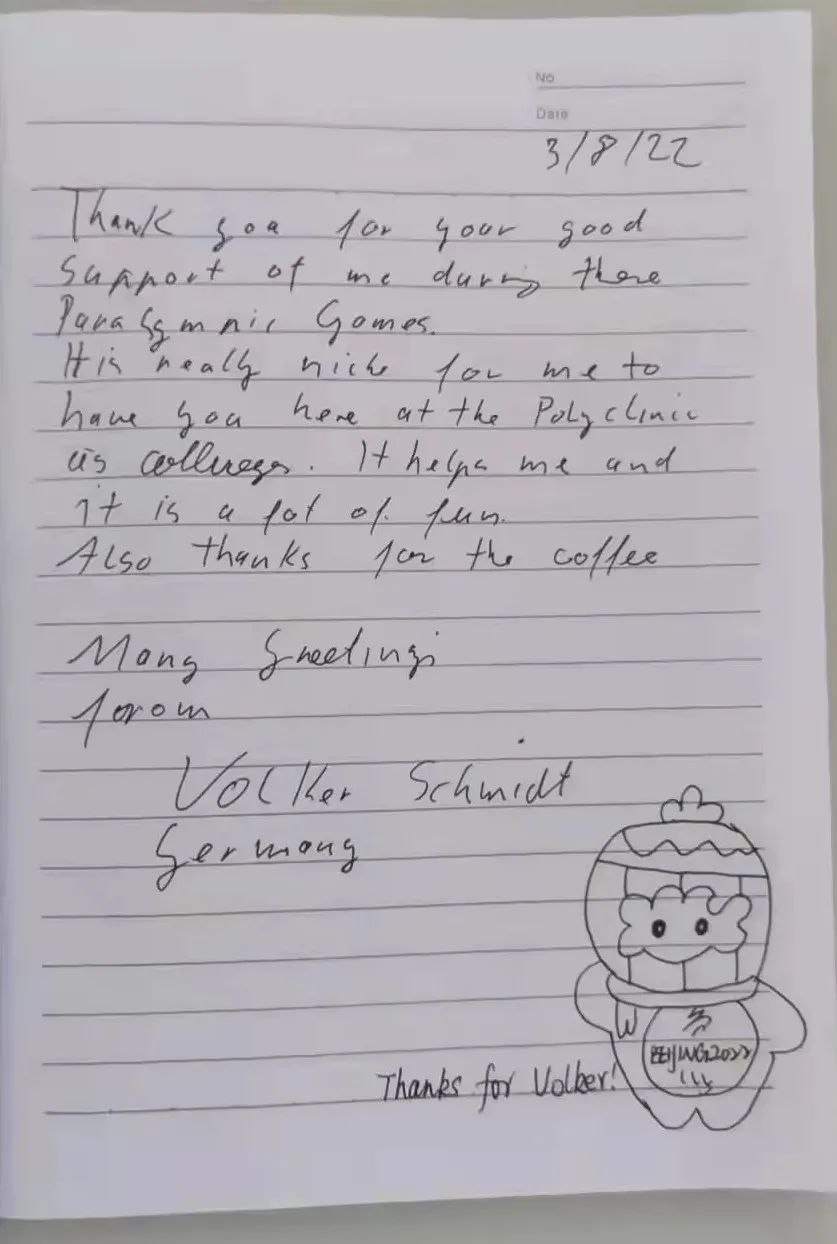 No
Date
3/8/22
Thank you for your good
support of me during there
Paralymnic Games.
It is really nice for me to
have you here at the Polyclinic
as collueges. It helps me and
it is a lot of fun.
Also thanks for the coffee
Many Greetings
from
Volker Schmidt
Germany
BEIJING2022
Thanks for Volker!